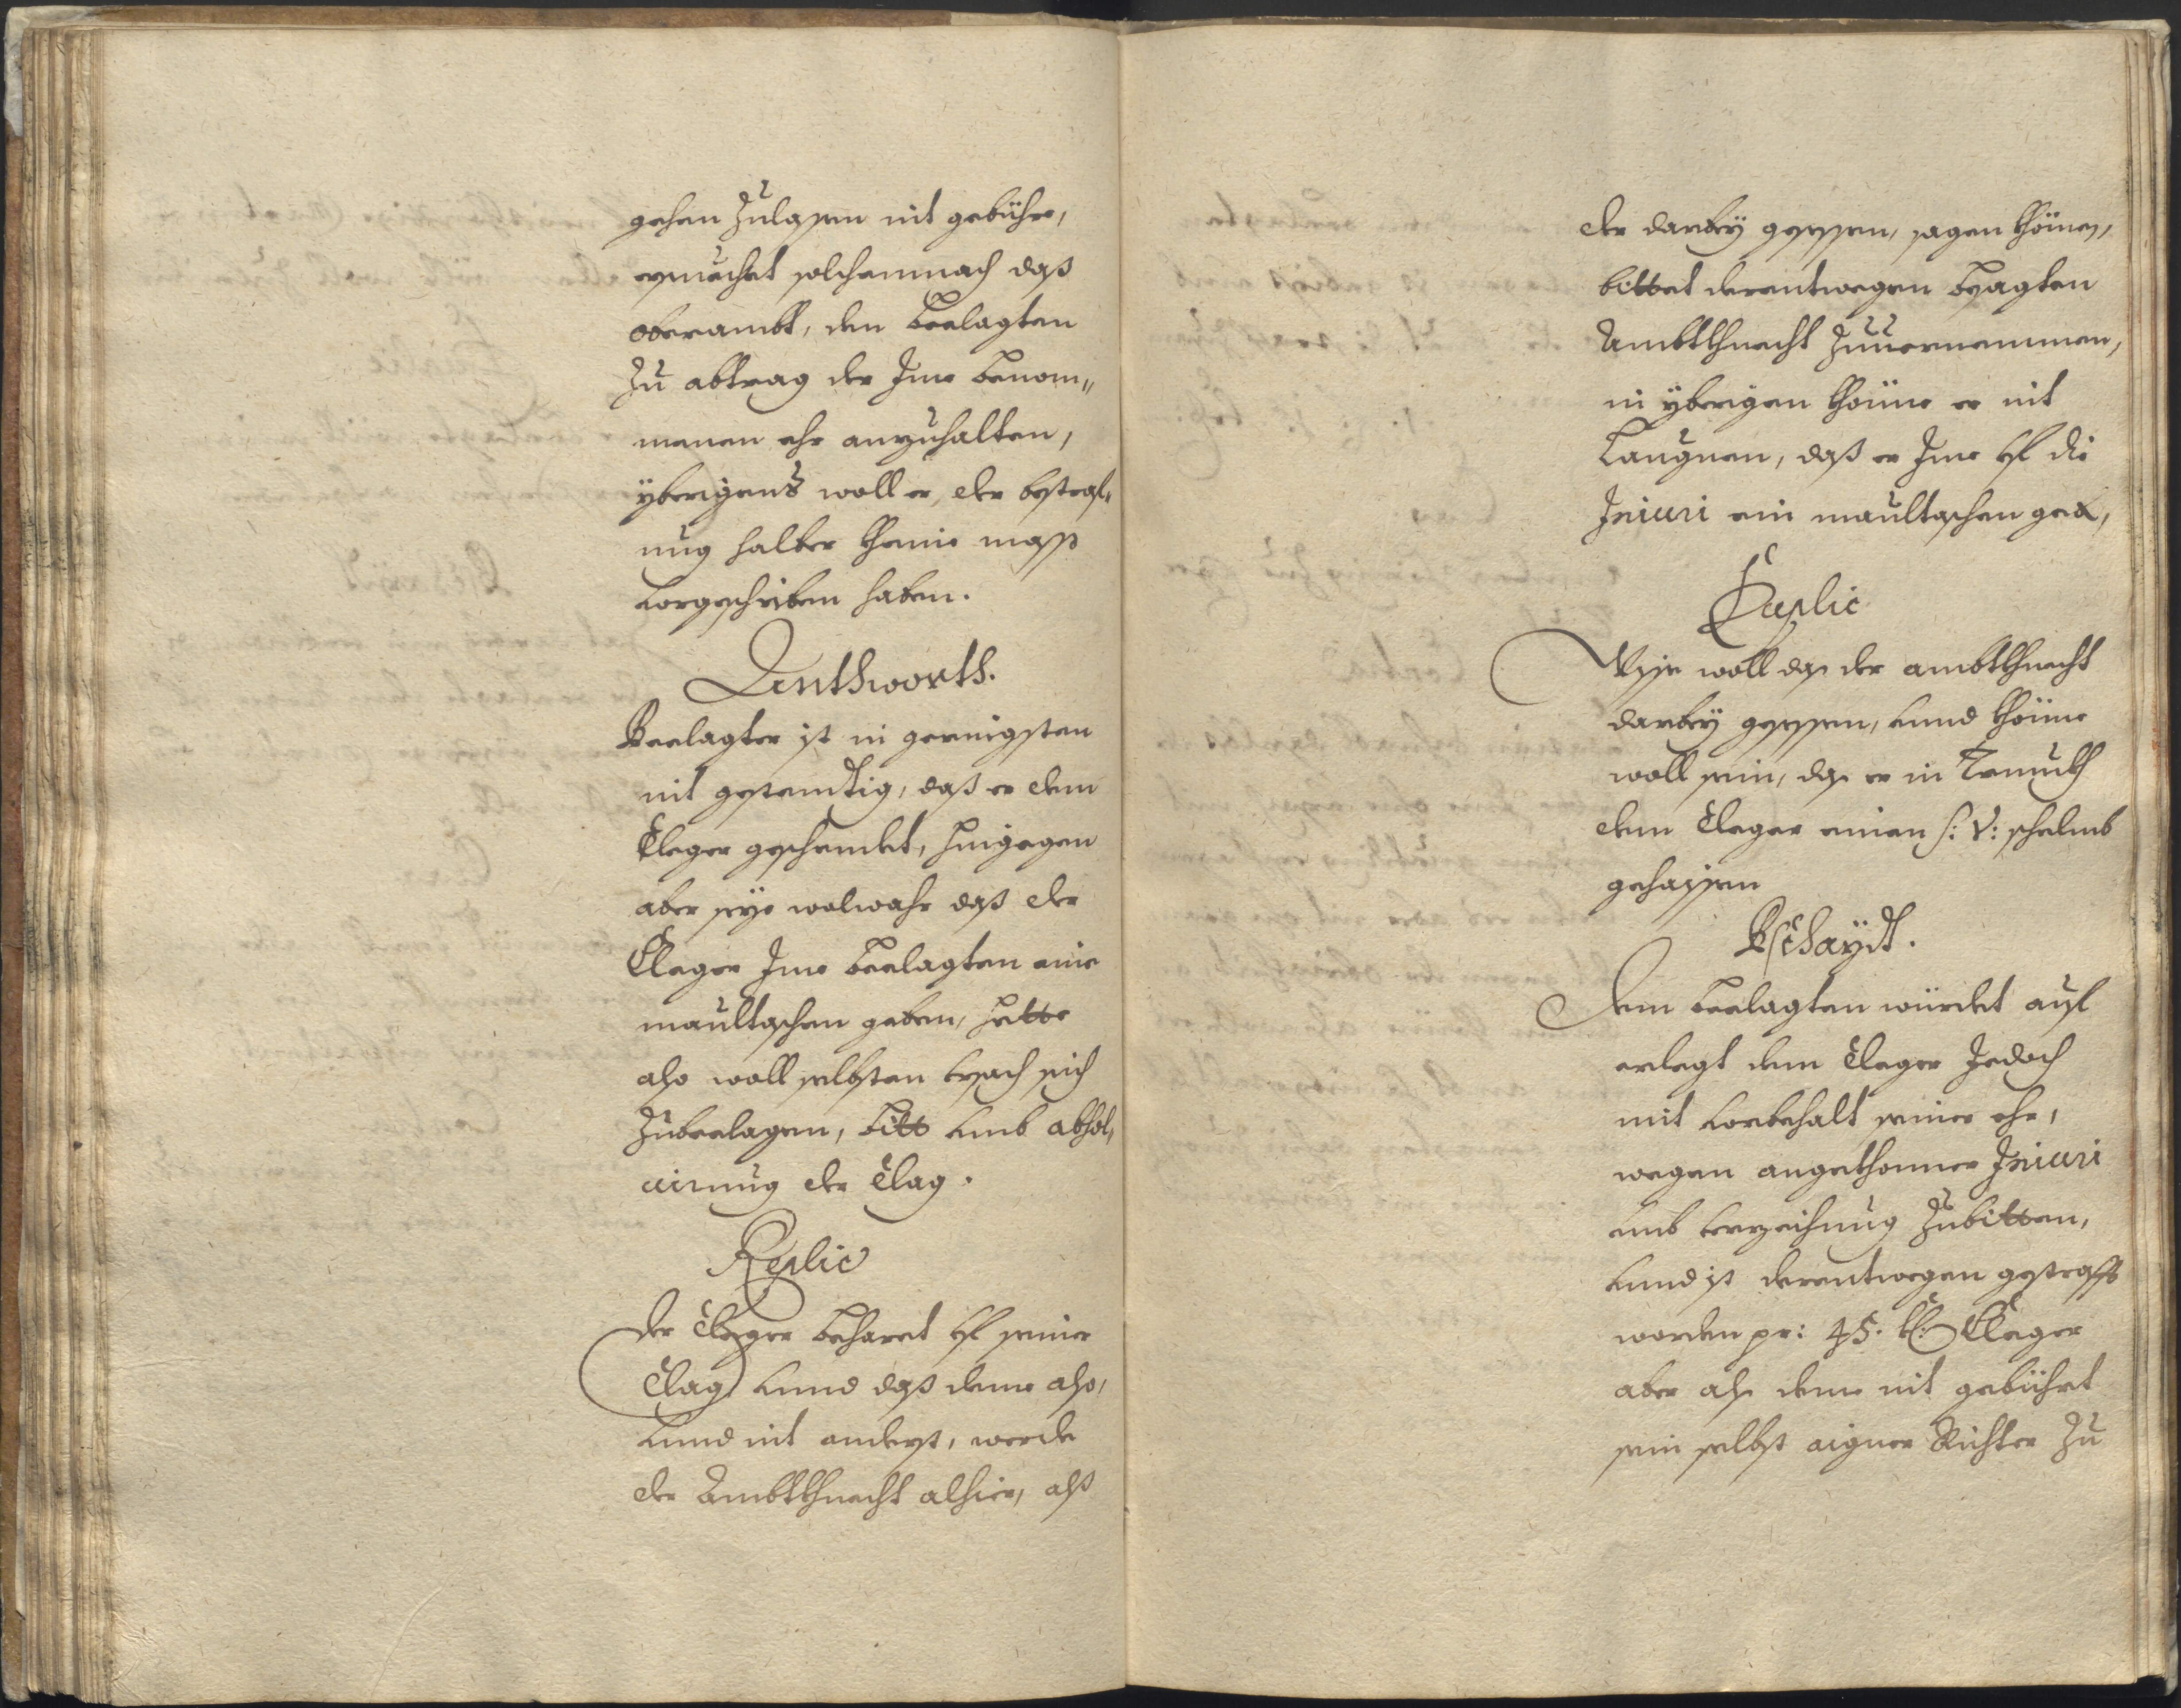 gehen zulassen nit gebühre,
ersuechet solchemnach daß
oberambt, den beclagten
zu abtrag der Ime benom„
menen ehr anzuhalten,
yberigens woll er, der bestraf„
ung halber kheine mass
vorgeschriben haben.
Anthworth.
Beclagter ist in geringsten
nit gestendtig, daß er dem
Cleger geschendet, hingegen
aber seye wolwahr daß der
Cleger Ime beclagten eine
maultaschen geben, hette
also woll selbsten Vrsach sich
zubeclagen, bitt vmb abhol„
uirung der Clag.
Replic
Der Cleger beharet vf seiner
Clag vnnd daß deme also,
vnnd nit anderst, werde
der Ambtkhnecht alhier, alß
der darbey gesessen, sagen khönen,
bittet derentwegen besagten
Ambtkhnecht zuuernemmen,
in yberigen khönne er nit
laugnen, daß er Ime vf die
Iniuri ein maultaschen geben,
Duplic
Wisse woll das der ambtkhnecht
darbey gesessen, vnnd khönne
woll sein, das er in
dem Cleger einen s: v: schelmb
gehaissen
Bschaydt.
Dem beclagten würdet auf
erlegt dem Cleger Jedoch
mit vorbehalt seiner ehr,
wegen angethonner Iniuri
vmb verzeihung zubitten,
vnnd ist derentwegen gestrafft
worden pr: 45. kr. Cleger
aber als deme nit gebühret
sein selbst aigner Richter zu